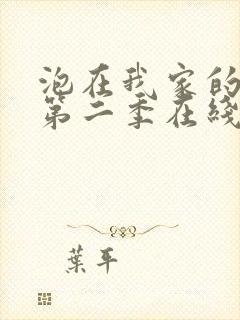 泡在我家的
第二季在线
葉平